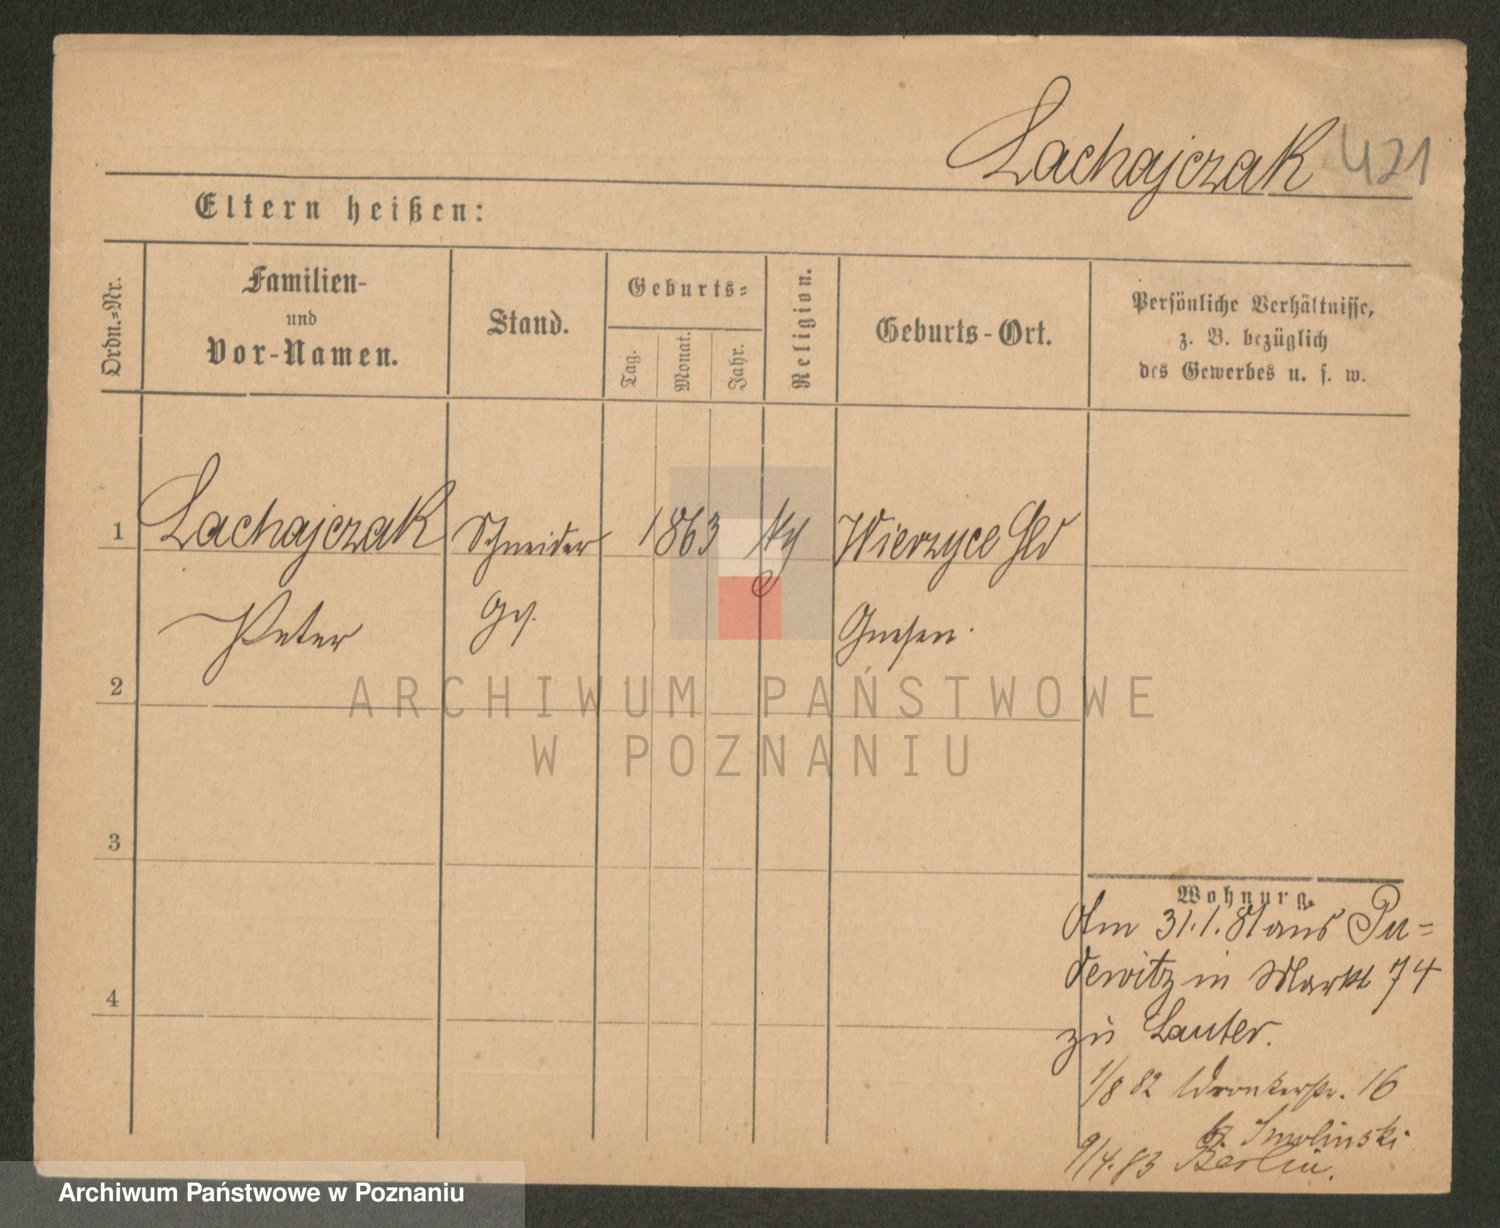 Lachajczak 421
Eltern heißen:
Ordn.-Nr.
Familien-
und
Vor-Namen.
Stand.
Geburts-
Tag.
Monat.
Jahr.
Religion.
Geburts-Ort.
Persönliche Verhältnisse,
z. B. bezüglich
des Gewerbes u. s. w.
1 Lachajczak Schneider 1863 Wierzyce
Peter Ges. Gnesen.
2
ARCHIWUM PAŃSTWOWE
W POZNANIU
3
Wohnung.
Am 31.1.81 aus Pu=
dewitz in Markt 74
4
zu Lauter.
1/8 82 Wronkerstr. 16
b. Smolinski
9/4.83 Berlin.
Archiwum Państwowe w Poznaniu